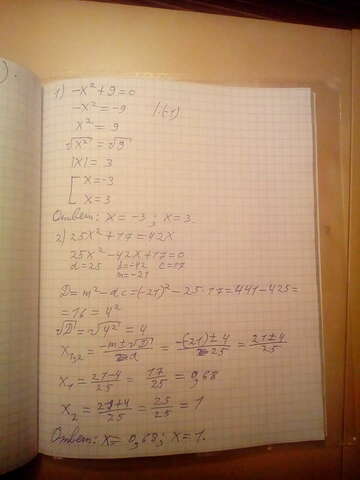 1) -x² + 9 = 0
-x² = -9 /·(-1)
x² = 9
√x² = √9
|x| = 3
[ x = -3
x = 3
Ответ: x = -3 ; x = 3.
2) 25x² + 17 = 42x
25x² - 42x + 17 = 0
a = 25 b = -42 c = 17
m = -21
D = m² - ac = (-21)² - 25·17 = 441 - 425 =
= 16 = 4²
√D = √4² = 4
x₁,₂ = (-m ± √D)/a = (-(-21) ± 4)/25 = (21 ± 4)/25
x₁ = (21 - 4)/25 = 17/25 = 0,68
x₂ = (21 + 4)/25 = 25/25 = 1
Ответ: x = 0,68 ; x = 1.